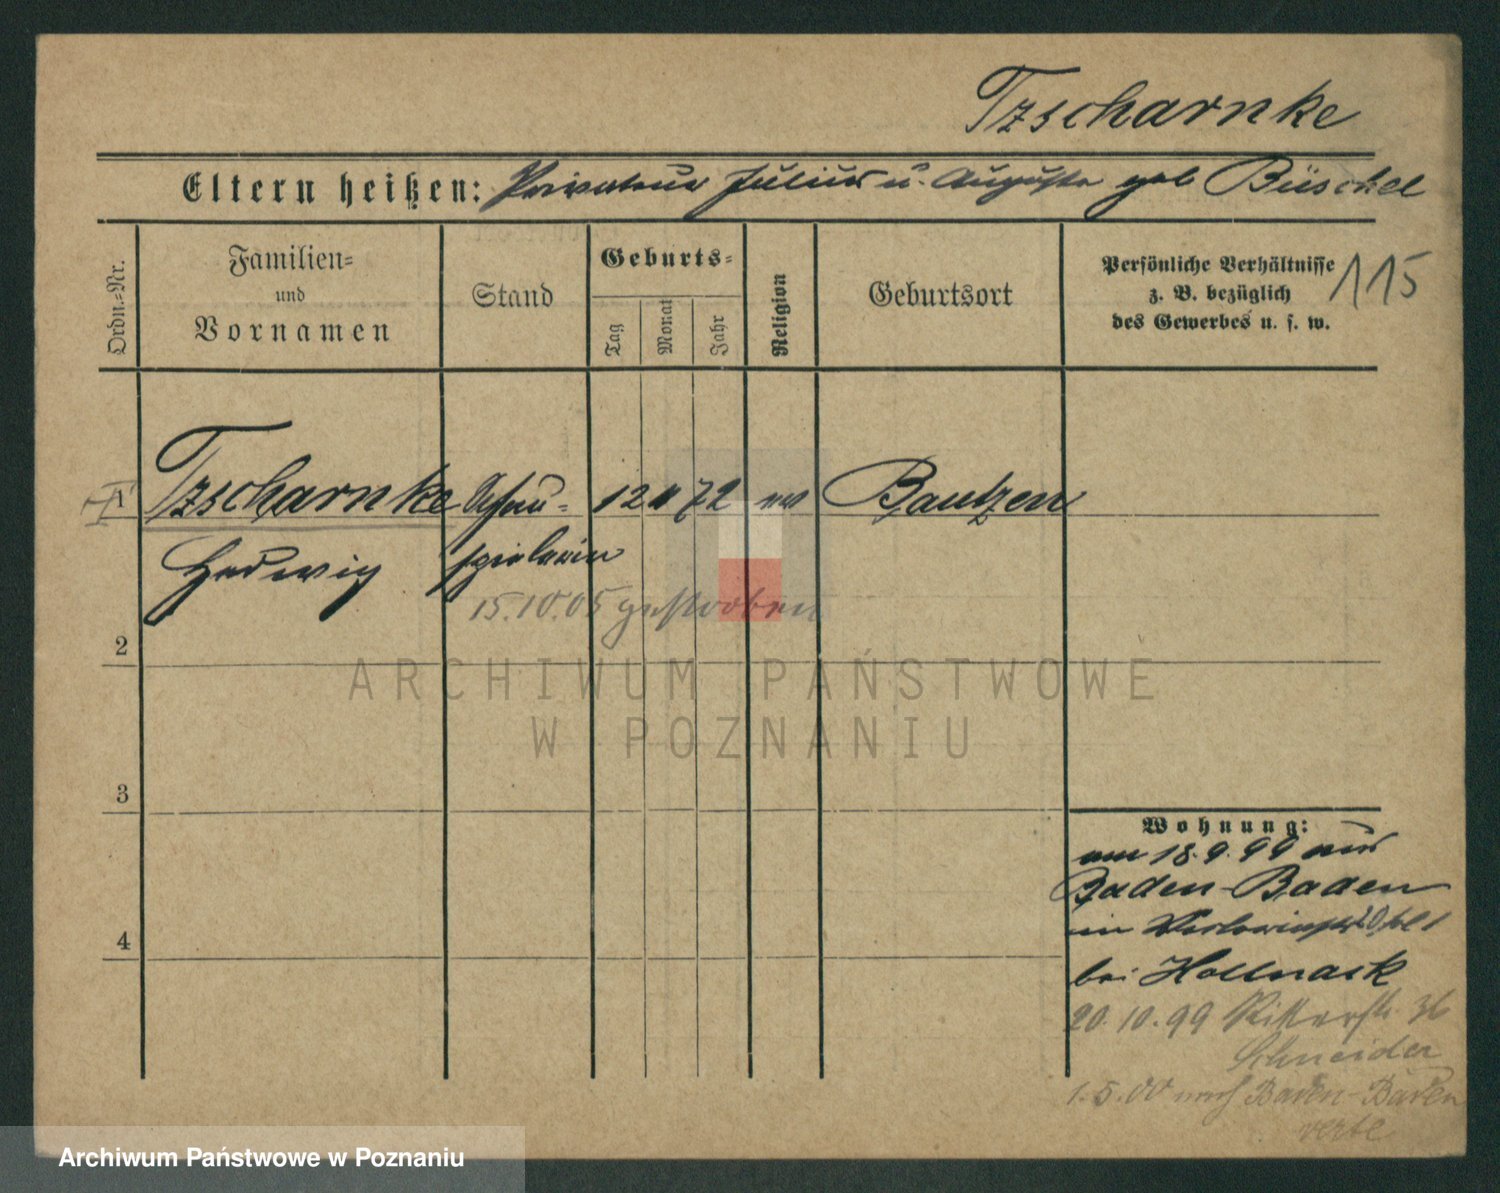 Tzscharnke
Eltern heißen: Privateur Julius u. Auguste geb Büschel
Ordn.=Nr.
Familien=
und
Vornamen
Stand
Geburts=
Tag
Monat
Jahr
Religion
Geburtsort
Persönliche Verhältnisse
z. B. bezüglich
des Gewerbes u. s. w.
115
1 Tzscharnke Schau= 12 72 ev Bautzen
Hedwig spielerin
15.10.05 gestorben
2
3
4
Wohnung:
am 18.9.99 aus
Baden-Baden
in
bei Hollnack
20.10.99 Ritterstr. 36
Schneider
1.5.00 nach Baden-Baden
verte
ARCHIWUM PAŃSTWOWE
W POZNANIU
Archiwum Państwowe w Poznaniu